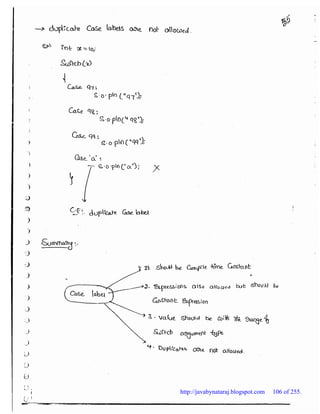 → duplicate Case labels are not allowed.
Ex: Int x=10;
Switch(x)
{
Case 97:
S.o.pln("97");
Case 98:
S.o.pln("98");
Case 99:
S.o.pln("99");
Case 'a':
S.o.pln("a"); X
}
C.E: duplicate Case label
Summary:
Case label
1. Should be Compile time Constant
2. Expressions also allowed but should be
Constant Expression
3. Value Should be with in the Range of
Switch argument type
4. Duplicates are not allowed.
http://javabynataraj.blogspot.com 106 of 255.